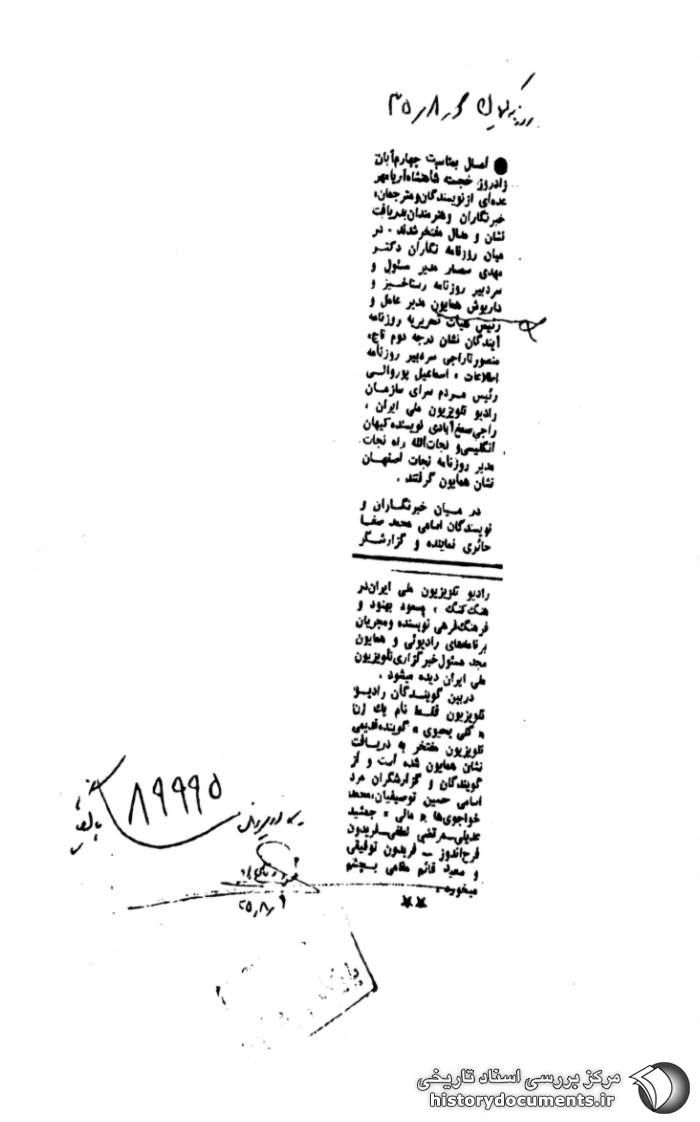 ۳۵٫۸٫۶
● امسال بمناسبت چهارم‌آبان
زادروز خجسته شاهنشاه‌آریامهر
عده‌ای ازنویسندگان‌ومترجمان،
خبرنگاران وهنرمندان‌بدریافت
نشان و مدال مفتخرشدند . در
میان روزنامه نگاران دکتر
مهدی سمسار مدیر مسئول و
سردبیر روزنامه رستاخیز و
داریوش همایون مدیر عامل و
رئیس هیات تحریریه روزنامه
آیندگان نشان درجه دوم تاج،
منصورتاراجی سردبیر روزنامه
اطلاعات ، اسماعیل پوروالی
رئیس مردم سرای سازمان
رادیو تلویزیون ملی ایران ،
راجی‌صمغ‌آبادی نویسنده‌کیهان
انگلیسی‌و نجات‌الله راه نجات
مدیر روزنامه نجات اصفهان
نشان همایون گرفتند .
در میان خبرنگاران و
نویسندگان اسامی محمد صفا
حائری نماینده و گزارشگر
رادیو تلویزیون ملی ایران‌در
هنگ‌کنگ ، مسعود بهنود و
فرهنگ‌فرهی نویسنده ومجریان
برنامه‌های رادیوئی و همایون
مجد مسئول‌خبرگزاری‌تلویزیون
ملی ایران دیده میشود .
دربین گویندگان رادیو
تلویزیون فقط نام یك زن
« گلی یحیوی » گوینده‌قدیمی
تلویزیون مفتخر به دریافت
نشان همایون شده است و از
گویندگان و گزارشگران مرد
اسامی حسین توصیفیان،محمد
خواجوی‌ها « مالی » جمشید
عدیلی‌ـ‌مرتضی لطفی‌ـ‌فریدون
فرح‌اندوز ـ فریدون توفیقی
و سعید قائم مقامی بچشم
میخورد .
★★
۸۹۹۹۵
۳۵٫۸٫۶
مرکز بررسی اسناد تاریخی
historydocuments.ir